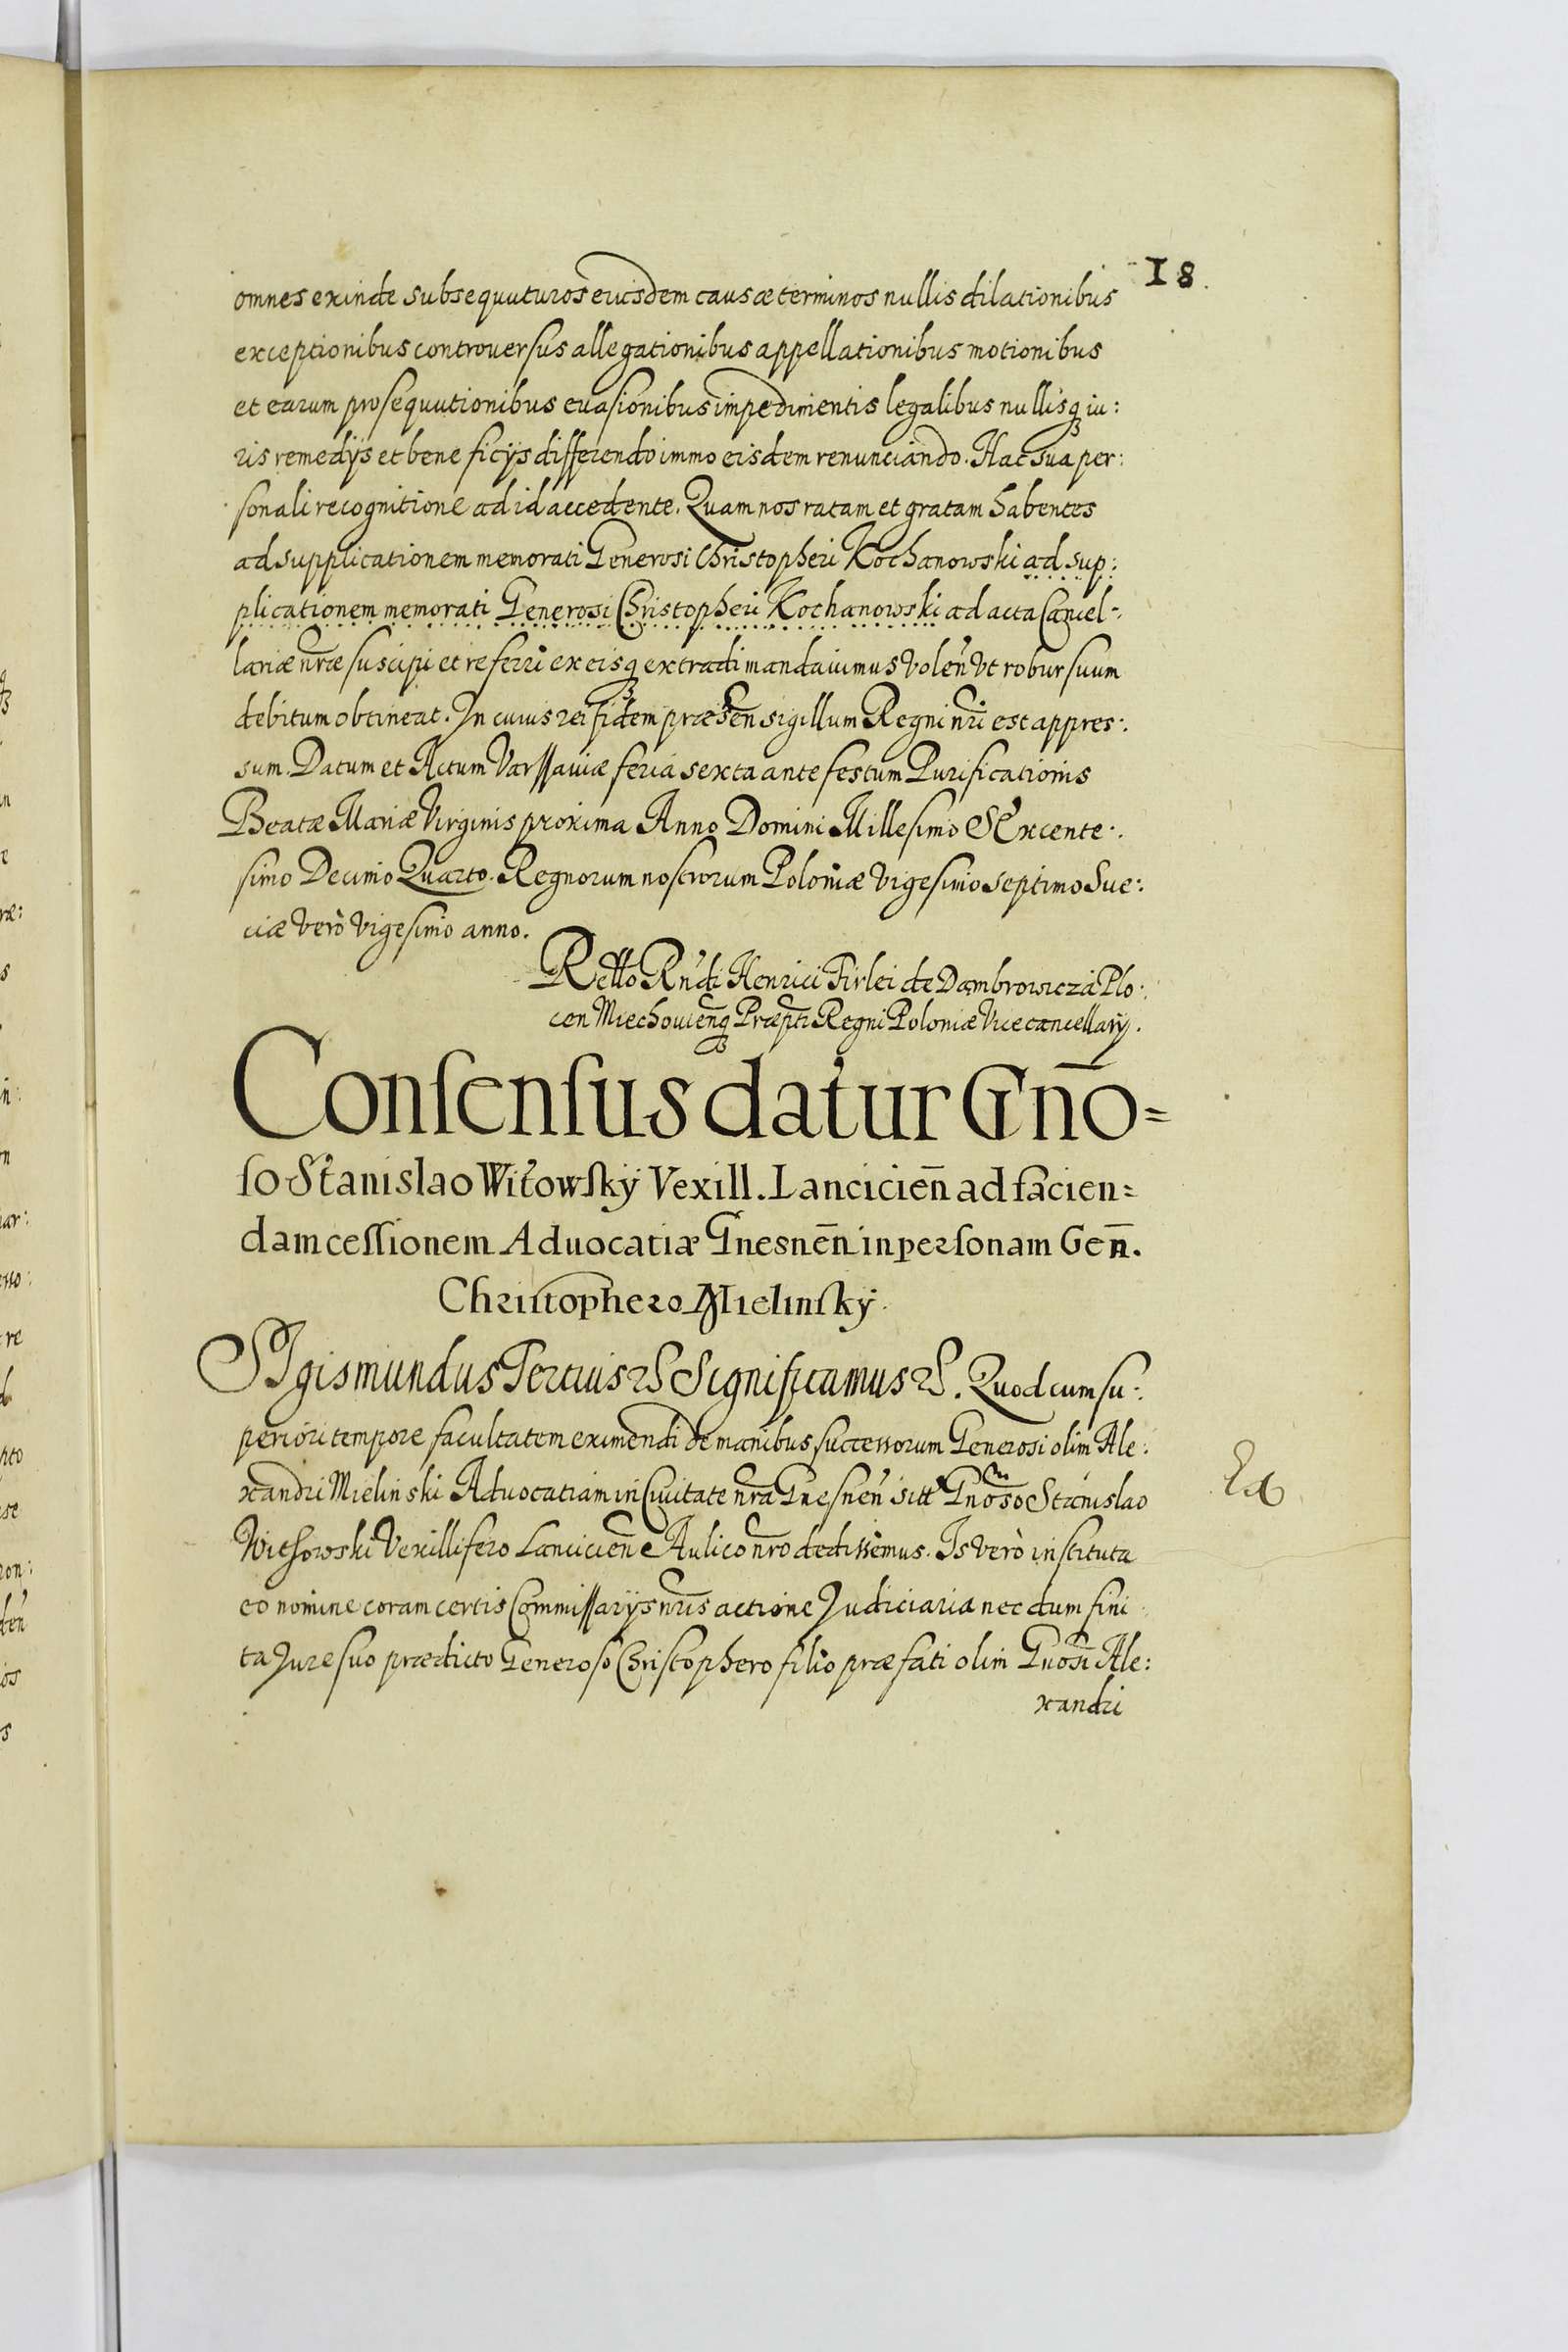 18.
omnes exinde subsequuturos eiusdem causæ terminos nullis dilationibus
exceptionibus controuersus allegationibus appellationibus motionibus
et earum prosequutionibus euasionibus impedimentis legalibus nullisq̃ iu:
ris remedijs et beneficijs differendo immo eisdem renunciando. Hac sua per:
sonali recognitione ad id accedente. Quam nos ratam et gratam habentes
ad supplicationem memorati Generosi Christopheri Kochanowski ad sup:
plicationem memorati Generosi Christopheri Kochanowski ad acta Cancel:
lariæ nr̃æ suscipi et referri ex eisq̃ extradi mandauimus volen̄ vt robur suum
debitum obtineat. In cuius rei fidem præsen̄ sigillum Regni nr̃i est appres:
sum. Datum et Actum Varssauiæ feria sexta ante festum Purificationis
Beatæ Mariæ Virginis proxima Anno Domini Millesimo Sexcente:
simo Decimo Quarto. Regnorum nostrorum Poloniæ vigesimo septimo Sue:
ciæ verò vigesimo anno.
Rel̃lo Rn̄di Henrici Firlei de Dambrowicza Plo:
cen Miechouien̄q̃ Præpt̃i Regni Poloniæ Vicecancellarij.
Consensus datur Gn̄o=
so Stanislao Witowsky Vexill. Lancicien̄ ad facien=
dam cessionem Aduocatiæ Gnesnen̄ in personam Gen̄.
Christophero Mielinsky.
SIgismundus Tertius &c Significamus &c. Quod cum su:
periori tempore facultatem eximendi de manibus successorum Generosi olim Ale:
xandri Mielinski Aduocatiam in Ciuitate nr̃a Gnesnen̄ sitt̃ Gn̄oso Stanislao
Withowski Vexillifero Lancicien̄ Aulico nr̃o dedissemus. Is verò instituta
eo nomine coram certis Commissarijs nr̃is actione Judiciaria nec dum fini
ta Jure suo prædicto Generoso Christophero filio præfati olim Gn̄osi Ale:
xandri